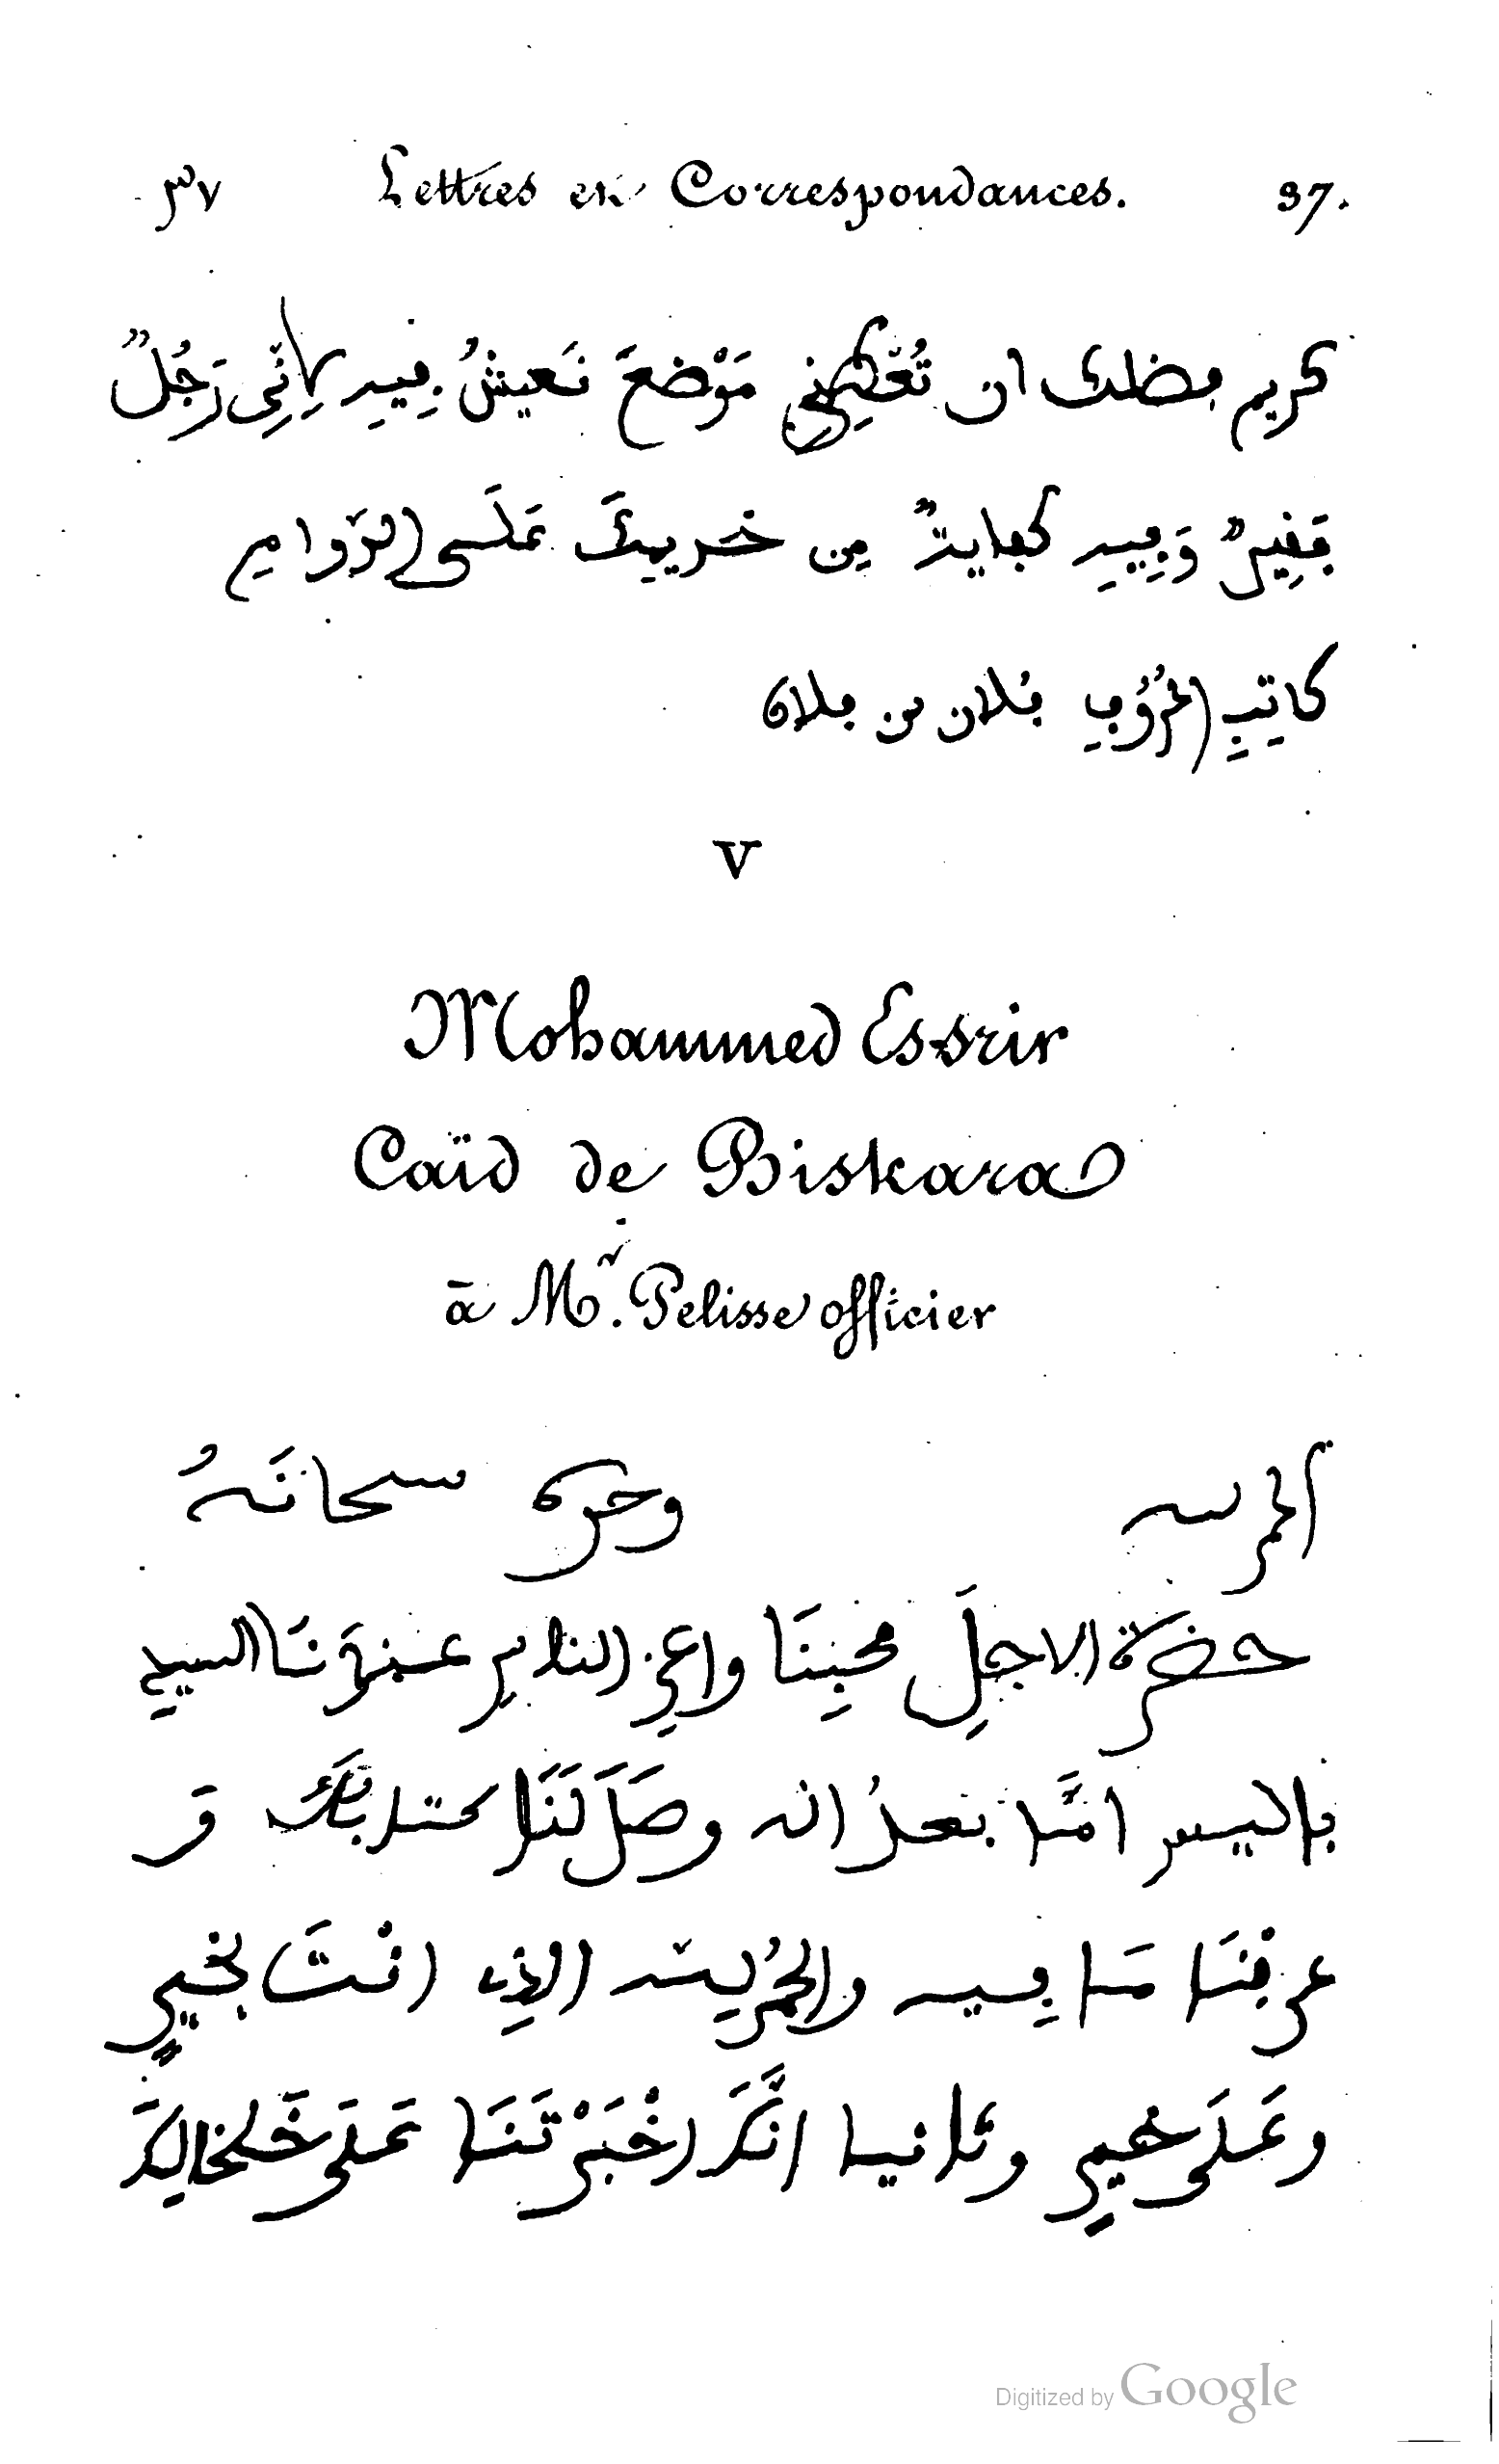 ٣٧ Lettres et Correspondances. 37.
كريم ڢضلك ان تُعْطِيَنِي مَوْضعَ نَعيشُ ڢِيهِ لِأَنِّي رَجُلٌ
ڢَفِيرٌ وَڢِيهِ كڢاية مِن خَدِيمِكَ عَلَى الدَّوامِ
كاتِبِ الحُرُوڢِ ڢُلان بن ڢلان
V
Mohammed Essrir
Caïd de Biskara
à Mr. Pelisse officier
الحمد لله وحده سبحانَهُ
حضرة الاجلِّ محبِنَا واعزِ الناسِ عندَنَا السيدِ
باليس امَّا بعدُ انه وصَلَ لَنَا كتابكَ وَ
عرڢنَا مَا ڢِيه والحمدُ لِلّه الذِي انْتَ بخيرٍ
وعَلَى خيرٍ وثانيا انَّكَ اخْبَرْتَنَا عَلَى خَلخالِكَ
Digitized by Google